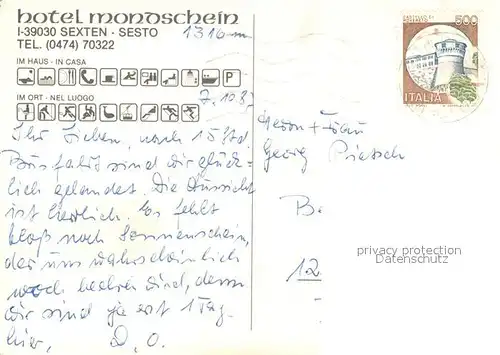 hotel mondschein
I-39030 SEXTEN - SESTO
TEL. (0474) 70322
1316 m
IM HAUS - IN CASA
P
IM ORT - NEL LUOGO
7.10.8
500
ITALIA
Ihr Lieben, nach 15 Std.
Busfahrt sind wir glück-
lich gelandet. Die Aussicht
ist herrlich. Es fehlt
bloß noch Sonnenschein,
der uns wahrscheinlich
noch wird, denn
wir sind ja erst 1 Tag
hier, D. O.
Herrn + Frau
Georg
B
12
privacy protection
Datenschutz